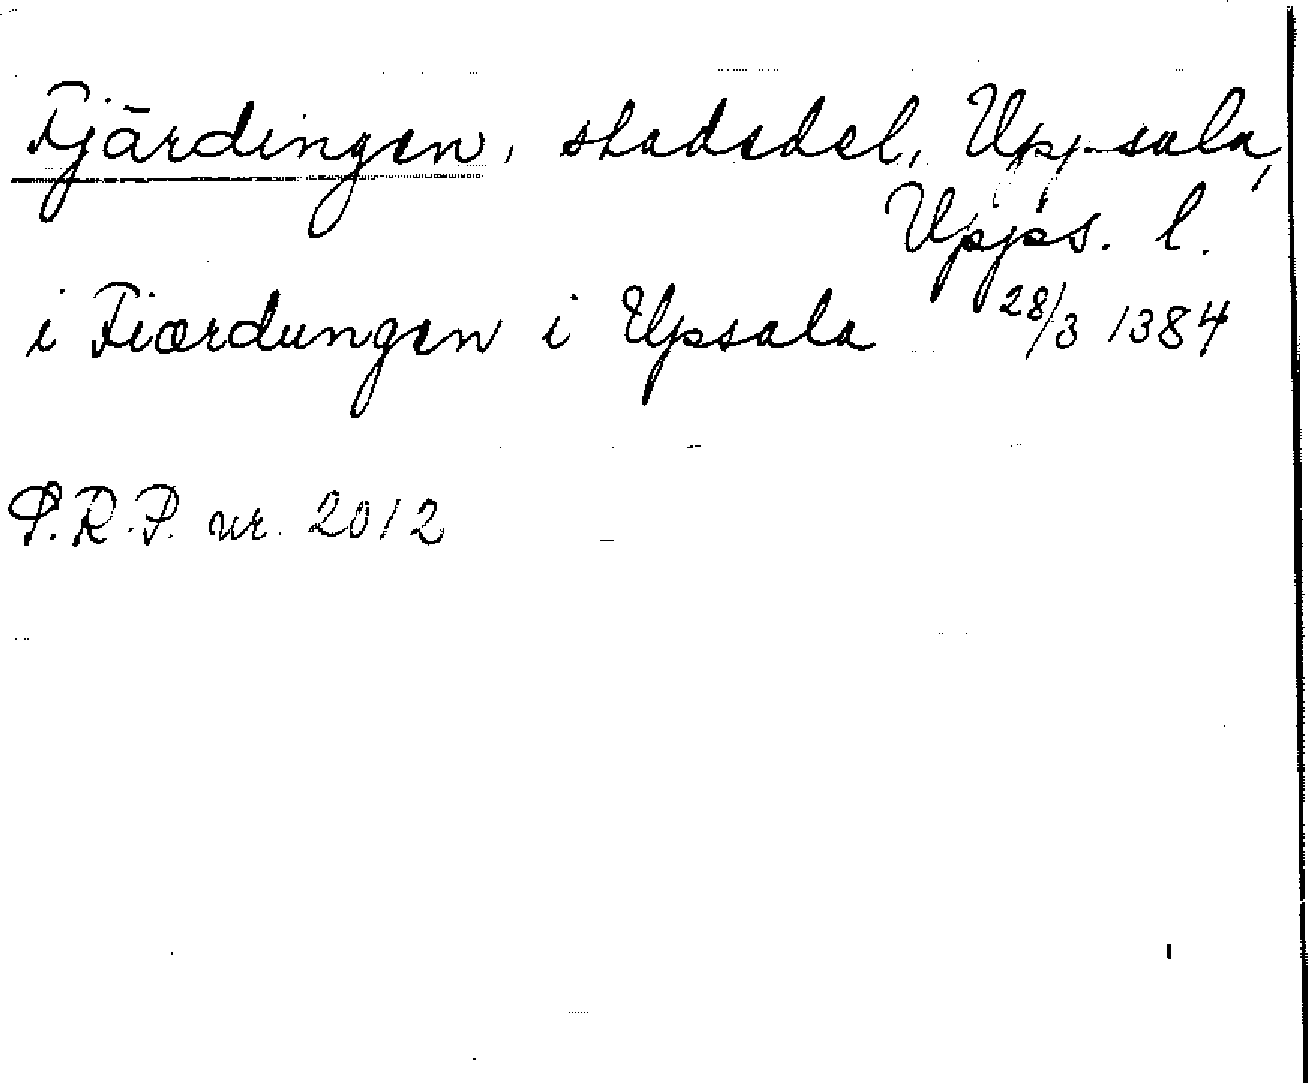 Fjärdingen, stadsdel, Uppsala,
Upps. l.
i Fiærdungen i Upsala 28/3 1384
S.R.P. nr. 2012